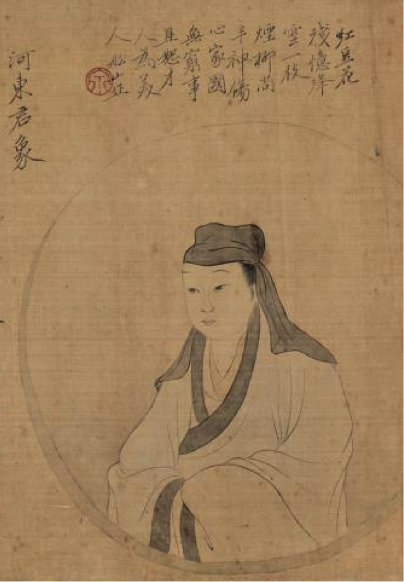 紅豆花
殘憶絳
雲一枝
煙柳尚
丰神傷
心家國
無窮事
且恕才
人為美
人
河東君象